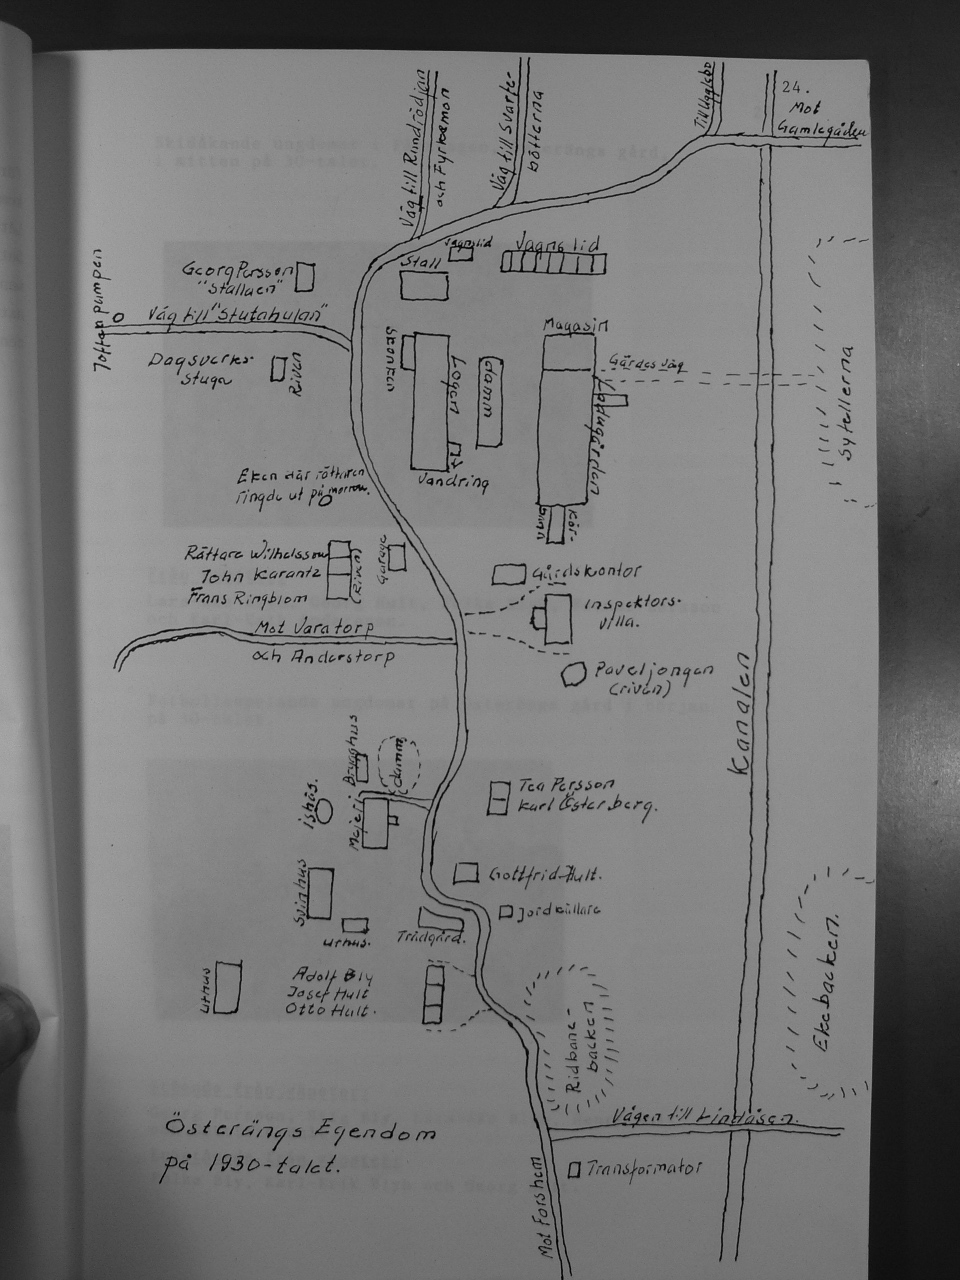 24.
Mot
Gamlegården
Till Ugglebo
Väg till Svarte-
bötterna
Väg till Rundrödjan
och Fyrkamon
Vagnslid
Vagnslid
Stall
Georg Persson
"Stallaen"
Toften pumpen
Väg till "Stutahulan"
Dagsverks-
stuga
Riven
Logen
damm
Magasin
Gärdes väg
Ladugården
Vandring
Kör-
bana
Sytellerna
Eken där rättaren
ringde ut på morron.
Rättare Wilhelsson
John Karantz
Frans Ringblom
(Riven)
Garage
Gårdskontor
Inspektors-
villa.
Mot Varatorp
och Anderstorp
Paveljongen
(riven)
Kanalen
Brygghus
damm
Ishus.
Mejeri
Tea Persson
Karl Österberg.
Gottfrid Hult.
Svinhus
Uthus.
Trädgård.
Jordkällare
Uthus
Adolf Bly
Josef Hult
Otto Hult.
Ridbane-
backen
Ekebacken.
Vägen till Lindåsen.
Österängs Egendom
på 1930-talet.
Mot Forshem
Transformator